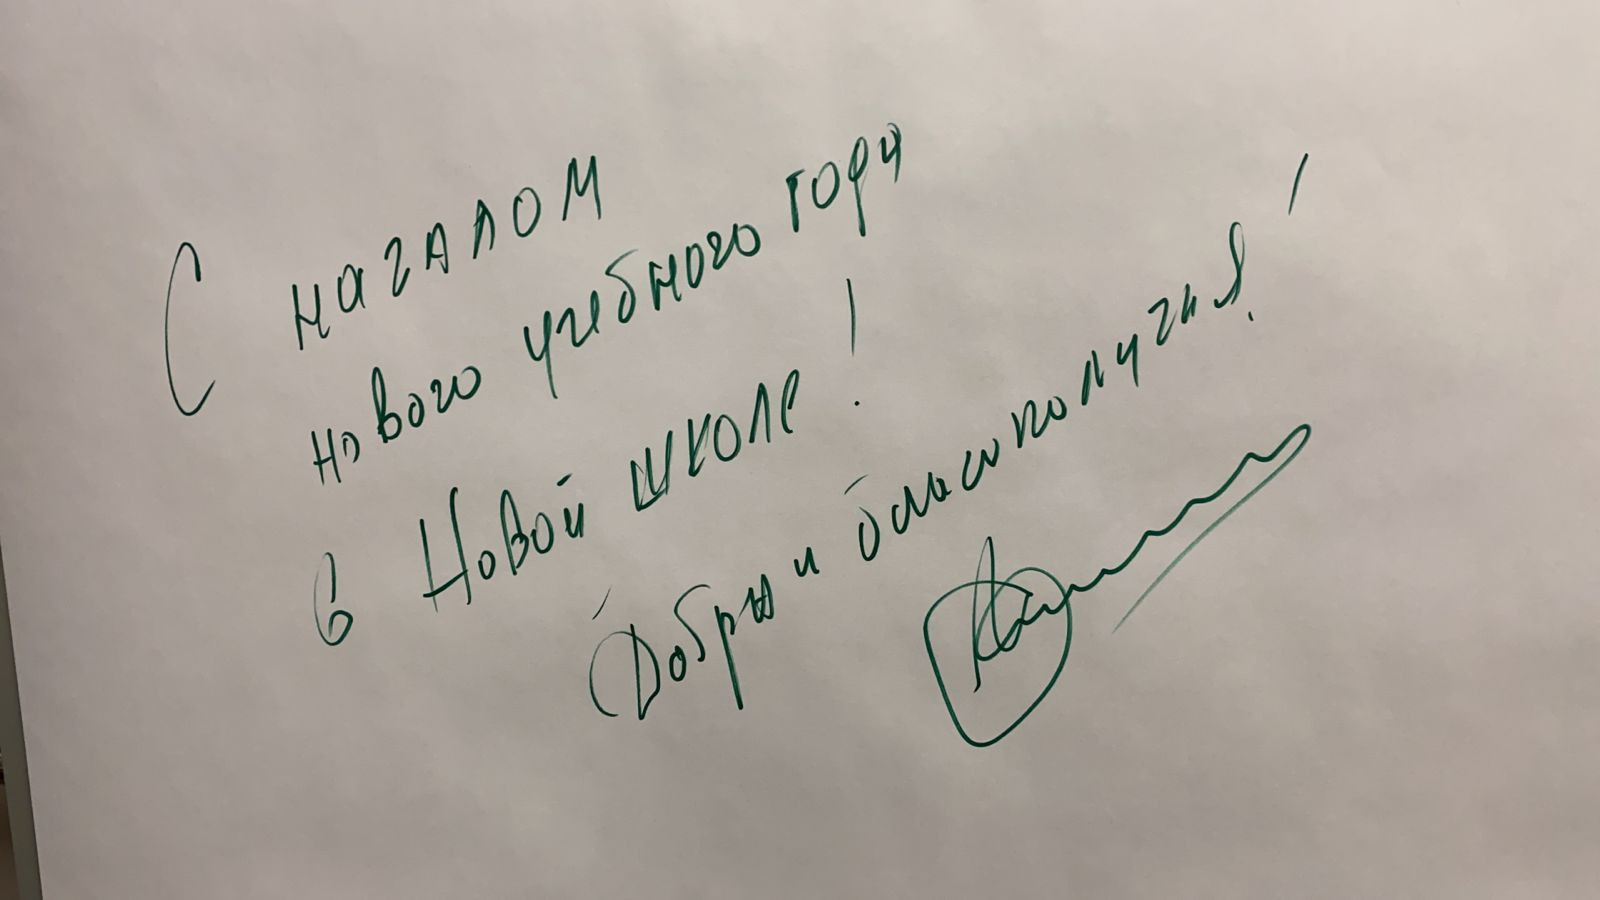 С началом
нового учебного года
в Новой школе!
Добра и благополучия!